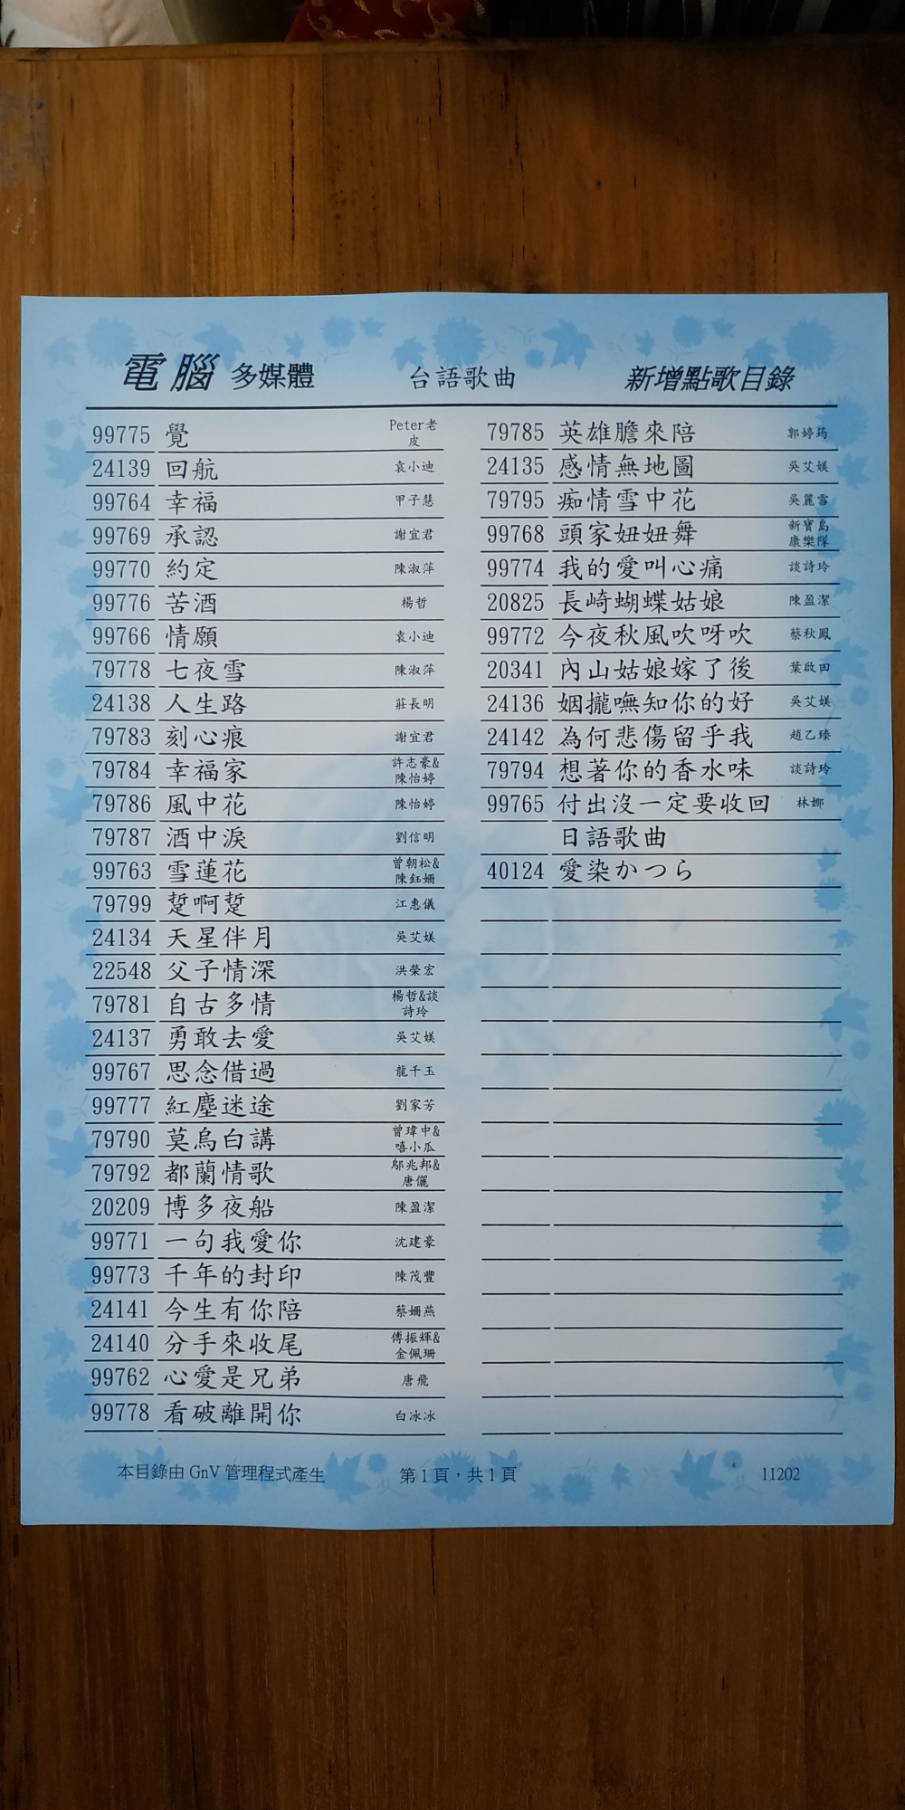 電腦 多媒體 台語歌曲 新增點歌目錄
99775 覺 Peter老皮
24139 回航 袁小迪
99764 幸福 甲子慧
99769 承認 謝宜君
99770 約定 陳淑萍
99776 苦酒 楊哲
99766 情願 袁小迪
79778 七夜雪 陳淑萍
24138 人生路 莊長明
79783 刻心痕 謝宜君
79784 幸福家 許志豪&陳怡婷
79786 風中花 陳怡婷
79787 酒中淚 劉信明
99763 雪蓮花 曾朝松&陳鈺姍
79799 踅啊踅 江惠儀
24134 天星伴月 吳艾媄
22548 父子情深 洪榮宏
79781 自古多情 楊哲&談詩玲
24137 勇敢去愛 吳艾媄
99767 思念借過 龍千玉
99777 紅塵迷途 劉家芳
79790 莫烏白講 曾瑋中&嘻小瓜
79792 都蘭情歌 鄔兆邦&唐儷
20209 博多夜船 陳盈潔
99771 一句我愛你 沈建豪
99773 千年的封印 陳茂豐
24141 今生有你陪 蔡姍燕
24140 分手來收尾 傅振輝&金佩珊
99762 心愛是兄弟 唐飛
99778 看破離開你 白冰冰
79785 英雄膽來陪 郭婷筠
24135 感情無地圖 吳艾媄
79795 痴情雪中花 吳麗雪
99768 頭家妞妞舞 新寶島康樂隊
99774 我的愛叫心痛 談詩玲
20825 長崎蝴蝶姑娘 陳盈潔
99772 今夜秋風吹呀吹 蔡秋鳳
20341 內山姑娘嫁了後 葉啟田
24136 姻攏嘸知你的好 吳艾媄
24142 為何悲傷留乎我 趙乙臻
79794 想著你的香水味 談詩玲
99765 付出沒一定要收回 林娜
日語歌曲
40124 愛染かつら
本目錄由 GnV 管理程式產生 第 1 頁，共 1 頁 11202